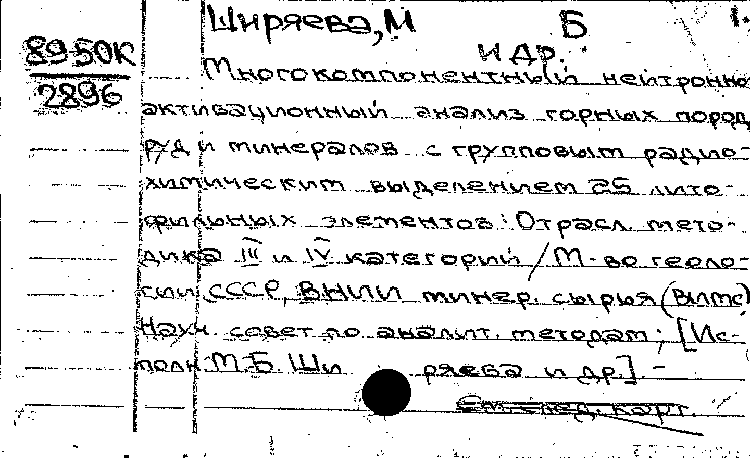 Ширяева, М Б 1.
и др.
8950К
2896
Многокомпонентный нейтронно
активационный анализ горных пород
руд и минералов с групповым радио-
химическим выделением 25 лито-
фильных элементов: Отрасл. мето-
дика III и IV категорий / М-во геоло-
гии СССР, ВНИИ минер. сырья (ВИМС)
Научн. совет по аналит. методам; [Ис-
полн. М.Б. Ши ряева и др.]. -
См. след. карт.